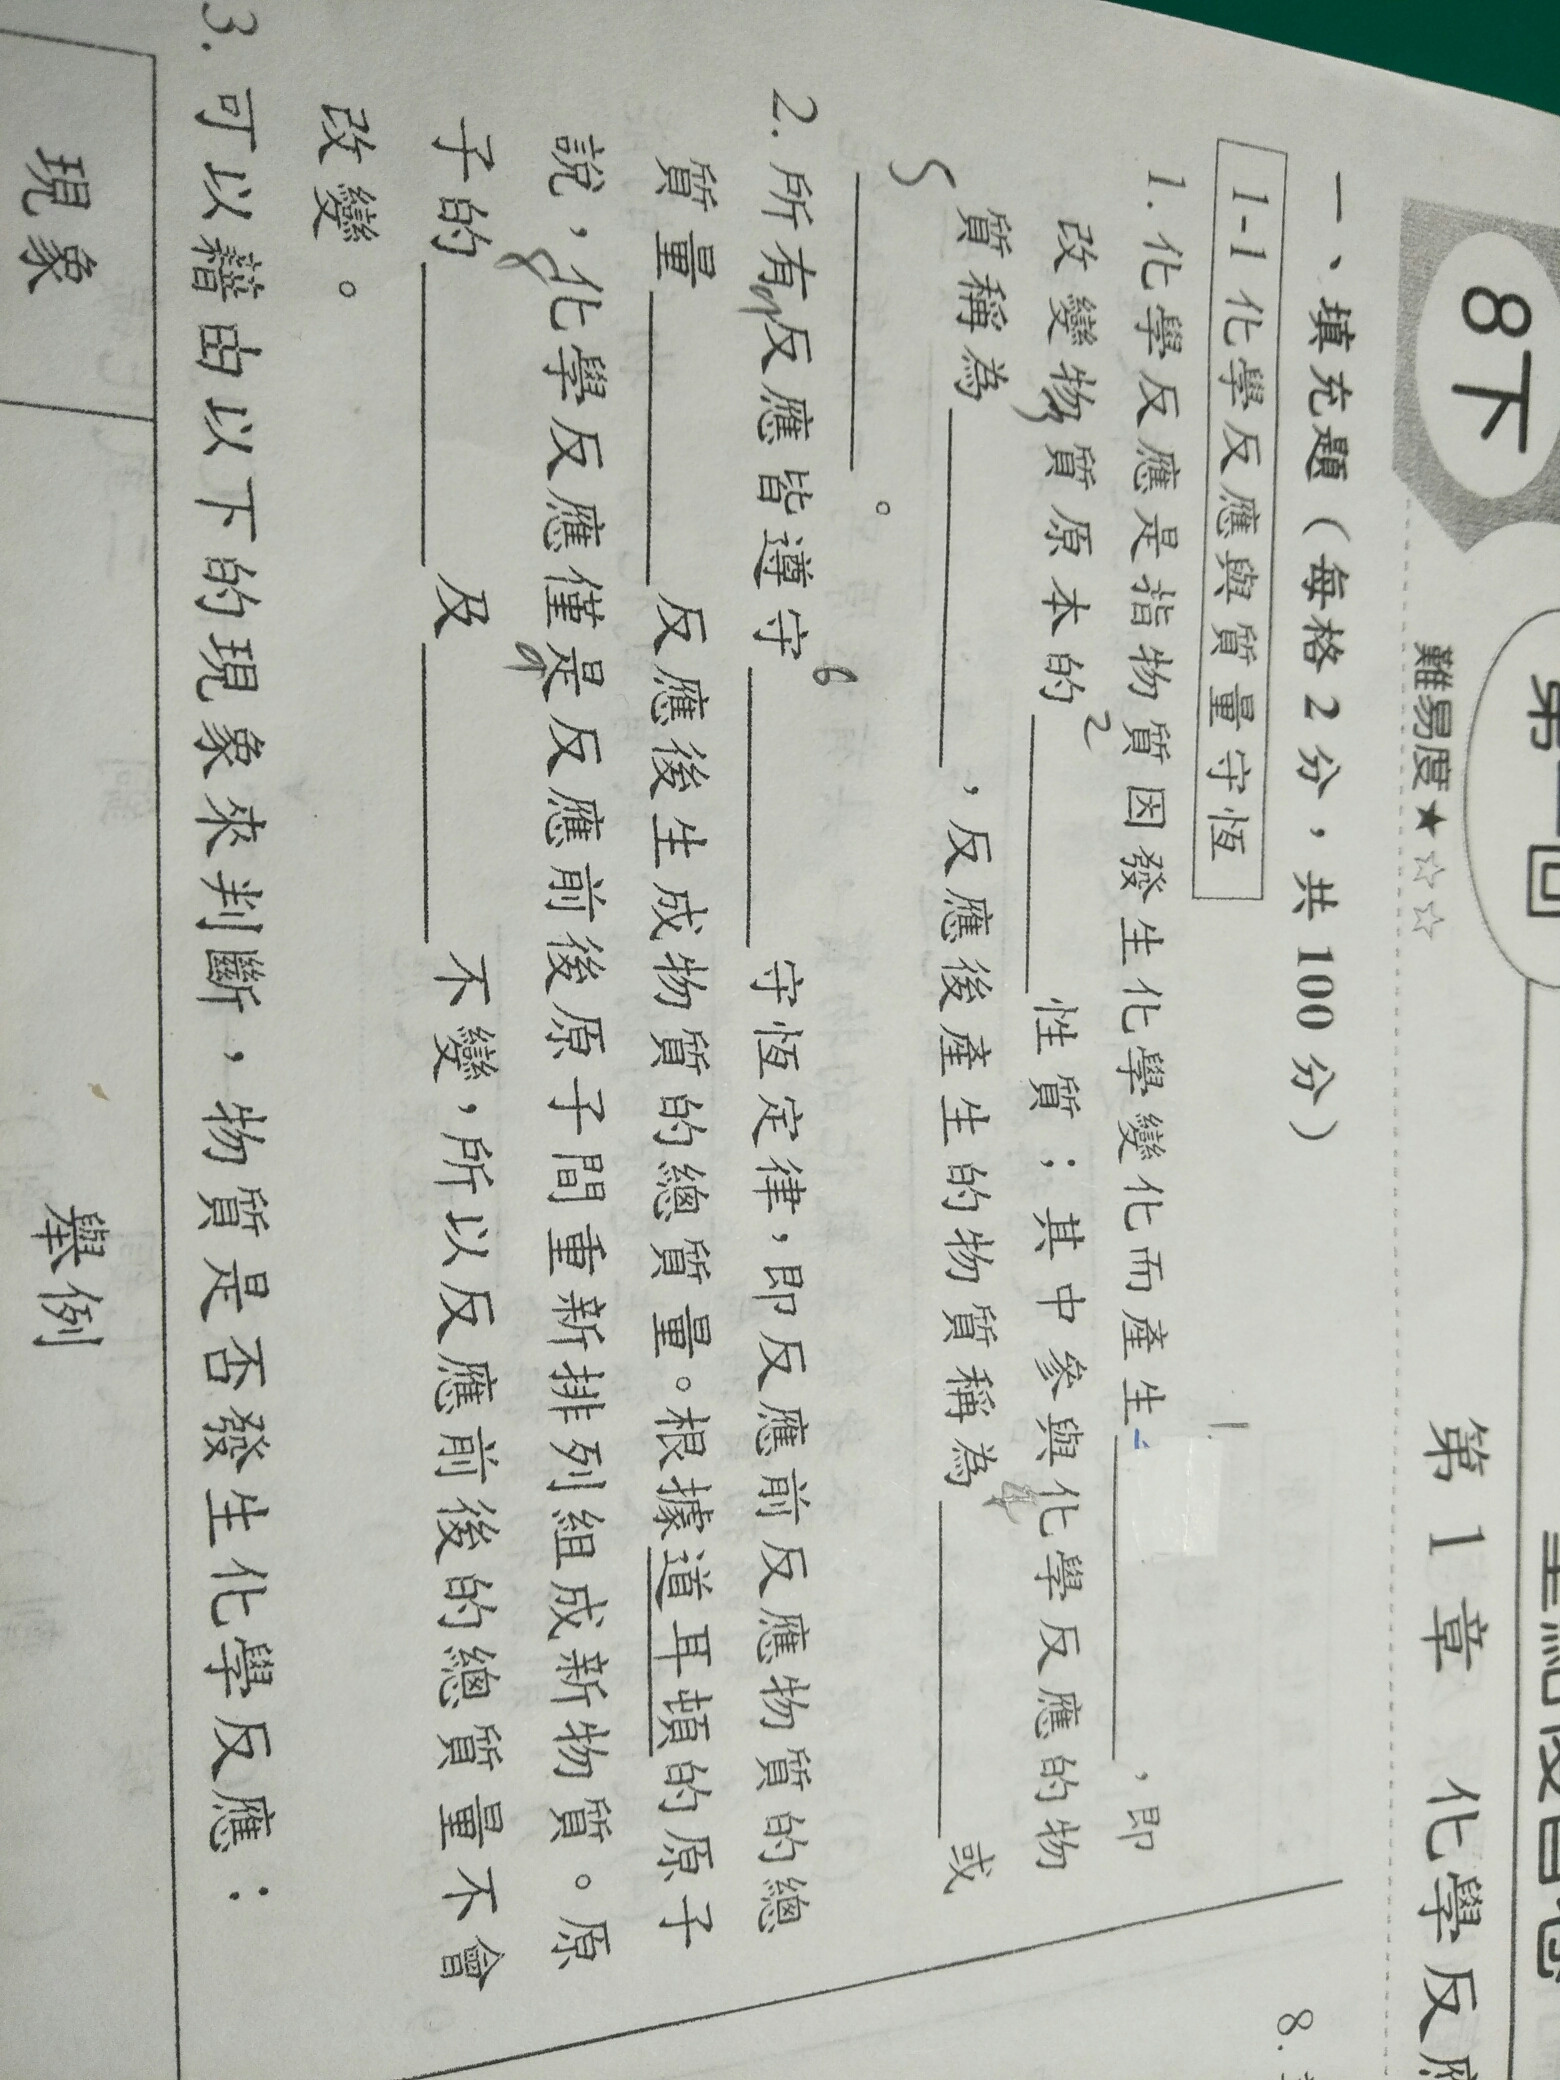 8下
難易度★☆☆
第 1 章 化學反
一、填充題（每格 2 分，共 100 分）
1-1 化學反應與質量守恆
1
1. 化學反應是指物質因發生化學變化而產生＿＿＿，即
2
改變物質原本的＿＿＿性質；其中參與化學反應的物
3 4
質稱為＿＿＿，反應後產生的物質稱為＿＿＿或
5
＿＿＿。
6
2. 所有反應皆遵守＿＿＿守恆定律，即反應前反應物質的總
質量＿＿＿反應後生成物質的總質量。根據道耳頓的原子
說，化學反應僅是反應前後原子間重新排列組成新物質。原
8 9
子的＿＿＿及＿＿＿不變，所以反應前後的總質量不會
改變。
3. 可以藉由以下的現象來判斷，物質是否發生化學反應：
現象 舉例
8.